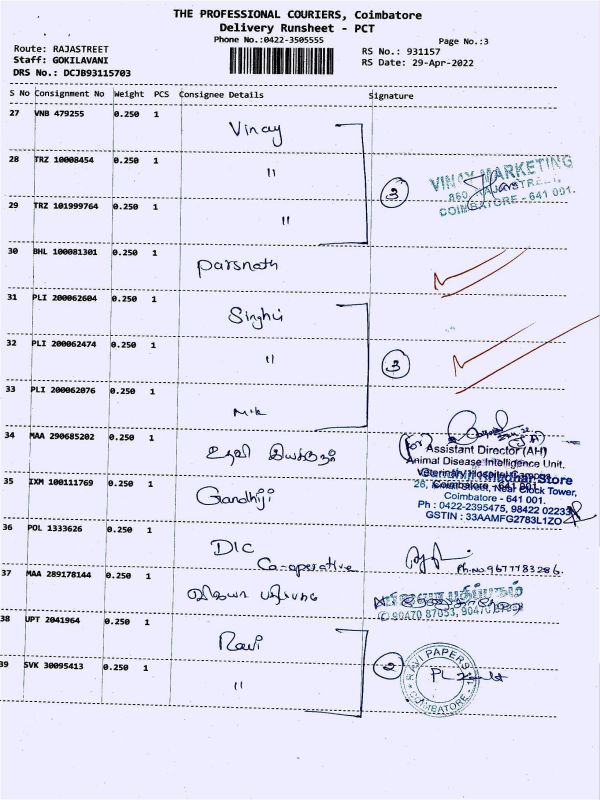 THE PROFESSIONAL COURIERS, Coimbatore
Delivery Runsheet - PCT
Phone No.:0422-3505555
Page No.:3
Route: RAJASTREET
Staff: GOKILAVANI
DRS No.: DCJB93115703
RS No.: 931157
RS Date: 29-Apr-2022
S No Consignment No Weight PCS Consignee Details Signature
27 VNB 479255 0.250 1 Vinay
28 TRZ 10008454 0.250 1 "
29 TRZ 101999764 0.250 1 "
3
VINAY MARKETING
860, RAJASTREET,
COIMBATORE - 641 001.
30 BHL 100081301 0.250 1 Parsnath
31 PLI 200062604 0.250 1 Singhvi
32 PLI 200062474 0.250 1 "
3
33 PLI 200062076 0.250 1
34 MAA 290685202 0.250 1 உதவி இயக்குநர்
(for)
Assistant Director (AH)
Animal Disease Intelligence Unit.
Veterinary Hospital Campus
Coimbatore - 641 001.
35 IXM 100111769 0.250 1 Gandhiji
Near Clock Tower,
Coimbatore - 641 001.
Ph : 0422-2395475, 98422 02233
GSTIN : 33AAMFG2783L1ZO
36 POL 1333626 0.250 1 DIC
Co-operative
Ph.no.9677783286.
37 MAA 289178144 0.250 1 விஜயா பதிப்பகம்
38 UPT 2041964 0.250 1 Ravi
39 SVK 30095413 0.250 1 "
2
RAVI PAPERS
COIMBATORE - 1